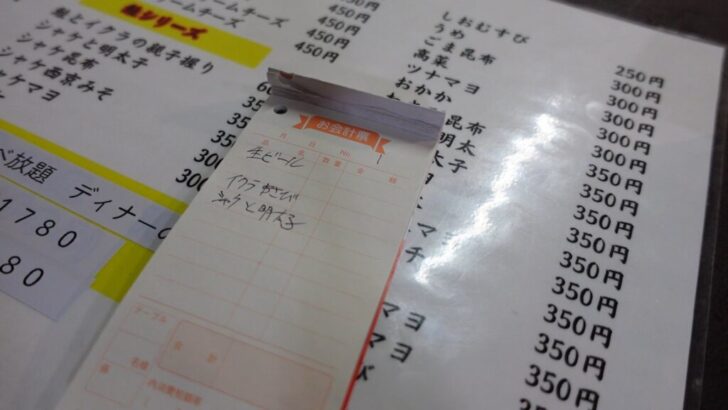 ームチーズ
ームチーズ
鮭シリーズ
鮭とイクラの親子握り
シャケと明太子
シャケ昆布
シャケ西京みそ
ャケマヨ
450円
450円
450円
350
350
300
300
べ放題 ディナー
1780
80
お会計票
月 日 No. 1
品 名 数量 金 額
生ビール
イクラ
シャケと明太子
テーブル
名様
係
合 計
しおむすび
うめ
ごま昆布
高菜
ツナマヨ
おかか
昆布
明太
太子
マ
チ
マヨ
マヨ
250円
300円
300円
300円
300円
350円
350円
350円
350円
350円
350円
350円
350円
350円
350円